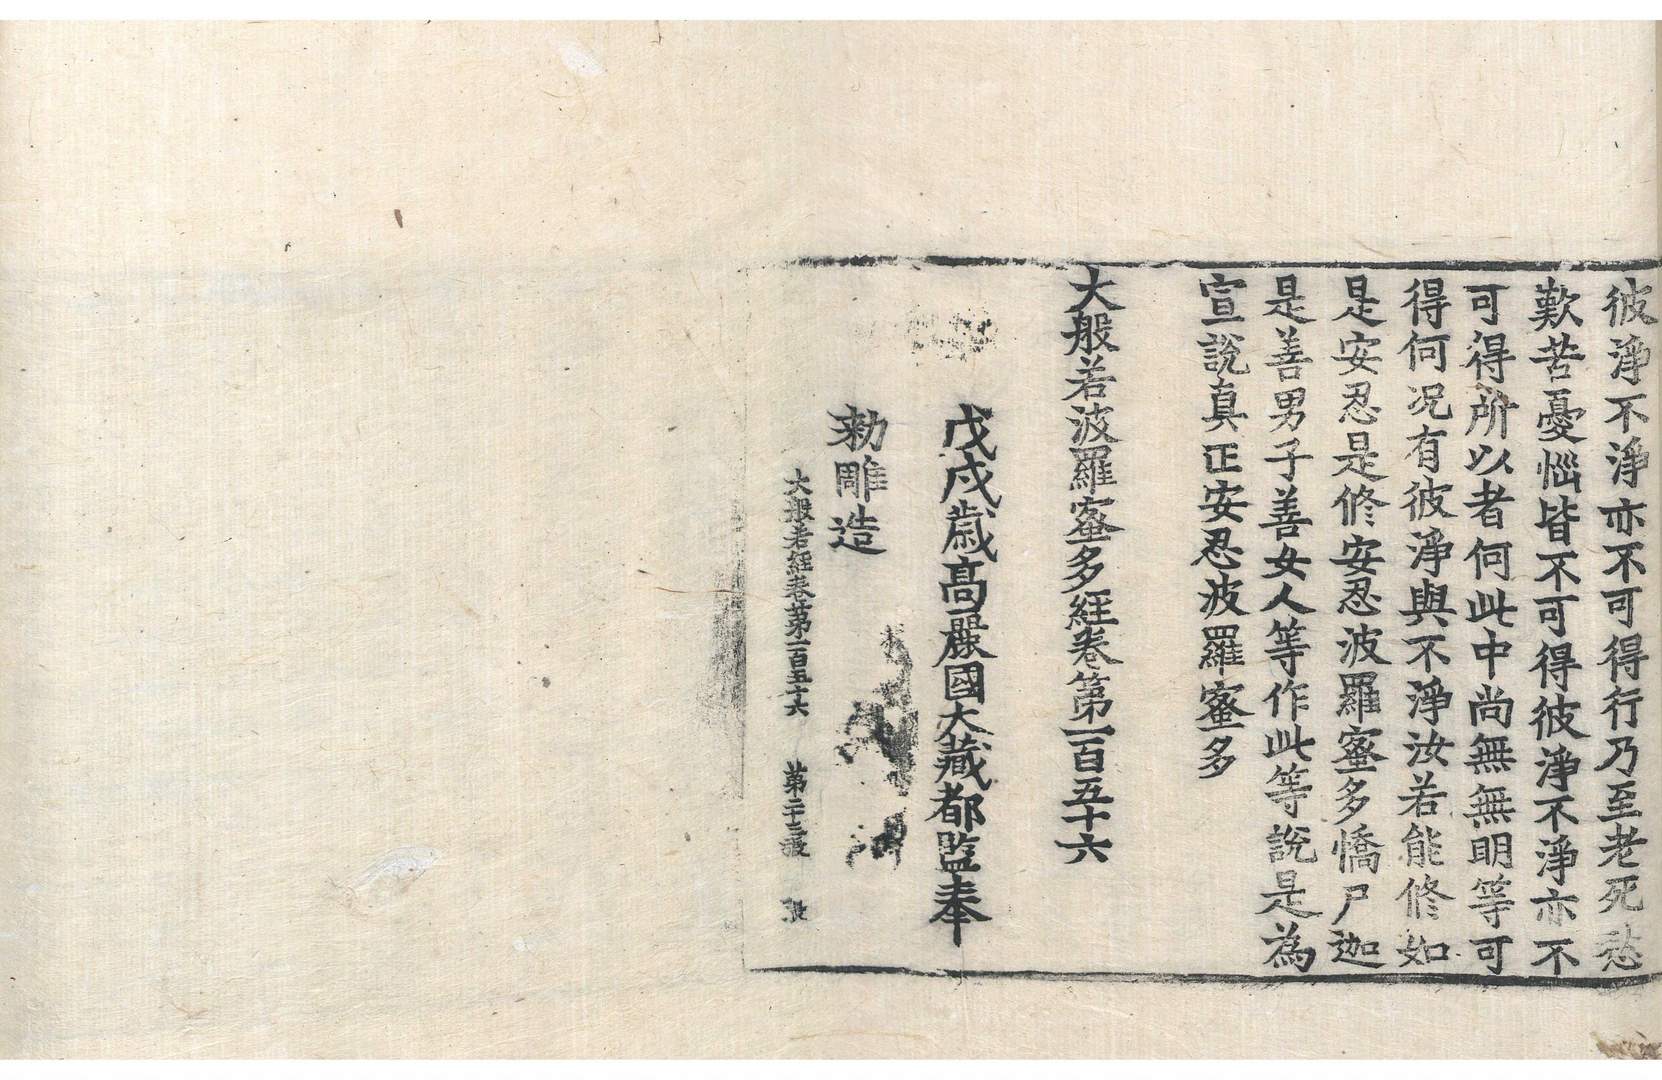 彼淨不淨亦不可得行乃至老死愁
歎苦憂惱皆不可得彼淨不淨亦不
可得所以者何此中尚無無明等可
得何況有彼淨與不淨汝若能修如
是安忍是修安忍波羅蜜多憍尸迦
是善男子善女人等作此等說是為
宣說真正安忍波羅蜜多
大般若波羅蜜多經卷第一百五十六
戊戌歲高麗國大藏都監奉
勑雕造
大般若經卷第一百五十六 第二十三張